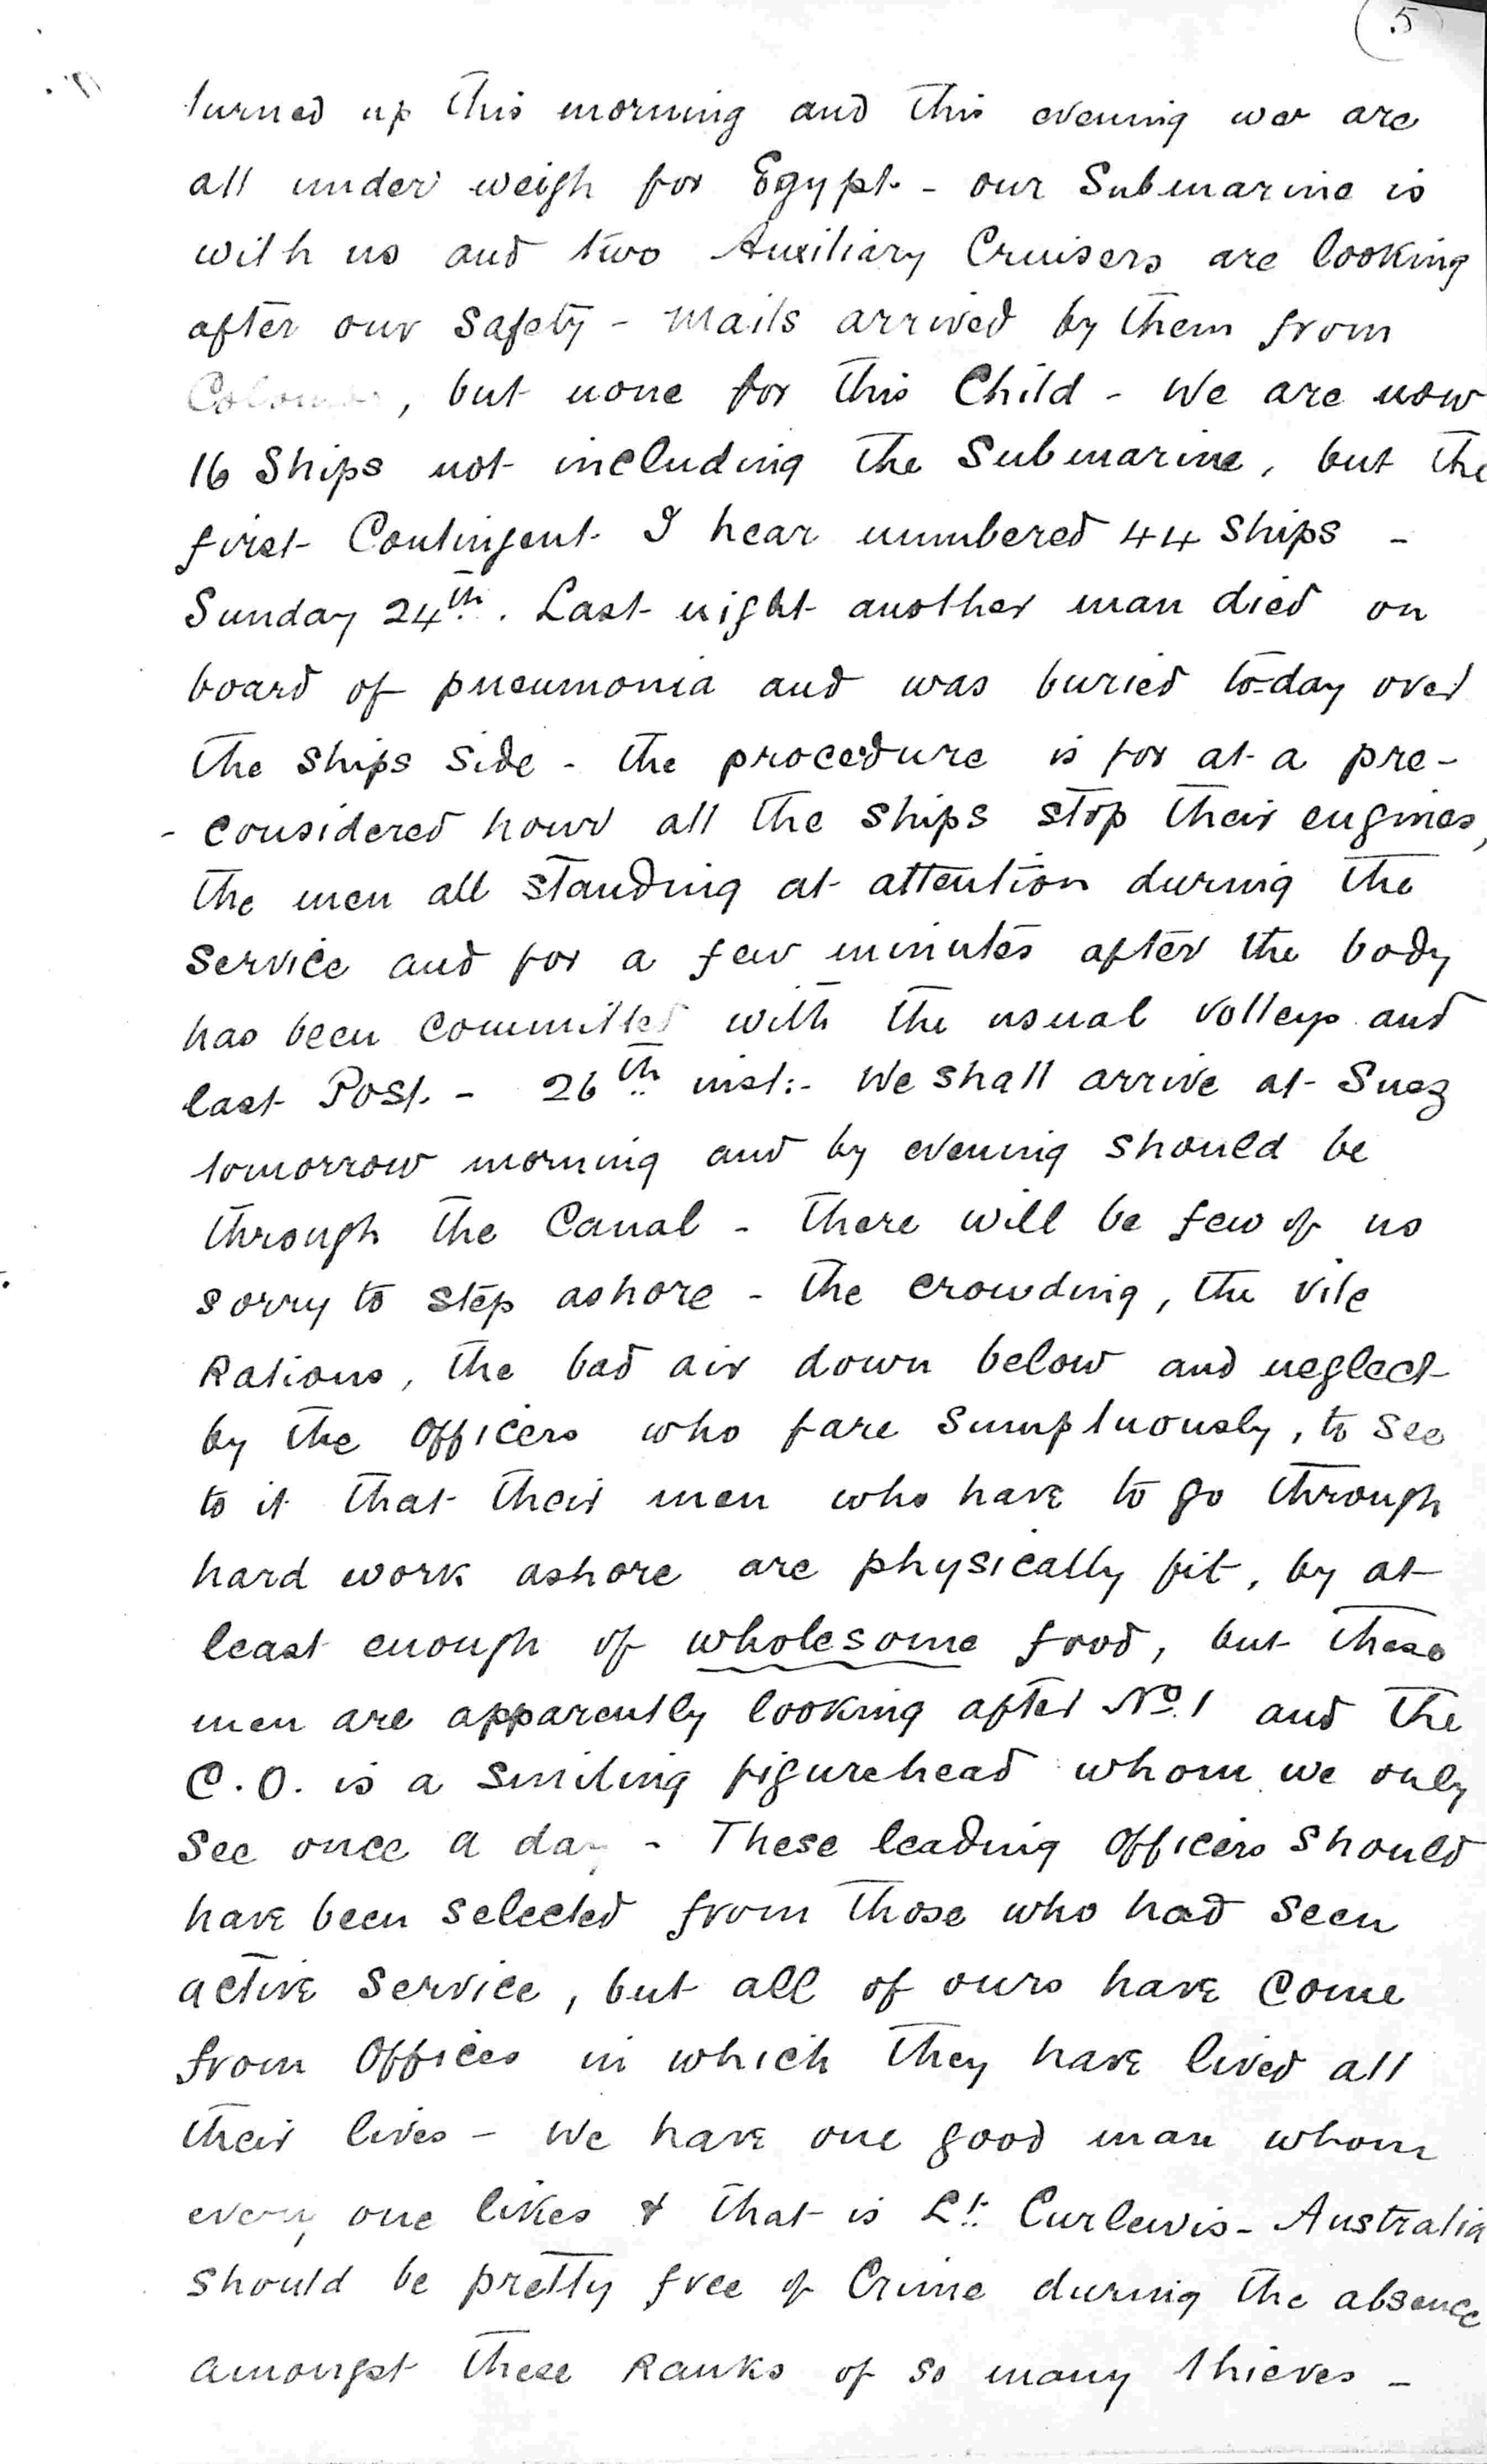 5
turned up this morning and this evening we are
all under weigh for Egypt - our Submarine is
with us and two Auxiliary Cruisers are looking
after our safety - mails arrived by them from
, but none for this Child - We are now
16 Ships not including the Submarine, but the
first Contingent I hear numbered 44 ships -
Sunday 24th. Last night another man died on
board of pneumonia and was buried to-day over
the ships side - the procedure is for at a pre-
- considered hour all the ships stop their engines,
the men all standing at attention during the
service and for a few minutes after the body
has been committed with the usual volleys and
last Post. - 26th inst:- We shall arrive at Suez
tomorrow morning and by evening should be
through the Canal - there will be few of us
sorry to step ashore - the crowding, the vile
Rations, the bad air down below and neglect
by the Officers who fare sumptuously, to see
to it that their men who have to go through
hard work ashore are physically fit, by at
least enough of wholesome food, but these
men are apparently looking after No. 1 and the
C.O. is a smiling figurehead whom we only
see once a day - These leading Officers should
have been selected from those who had seen
active service, but all of ours have come
from Offices in which they have lived all
their lives - We have one good man whom
every one likes & that is Lt. Curlewis - Australia
should be pretty free of Crime during the absence
amongst these Ranks of so many thieves -